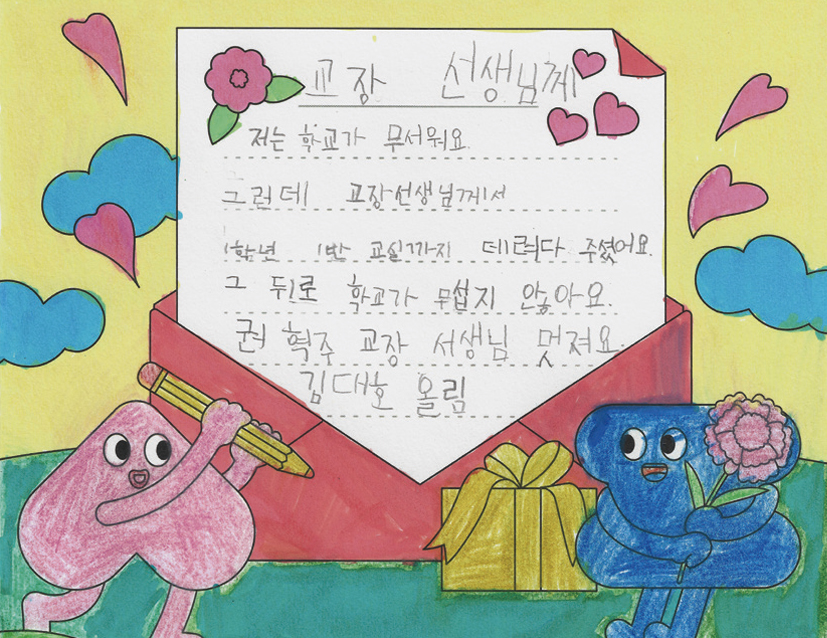 교장 선생님께
저는 학교가 무서워요.
그런데 교장선생님께서
1학년 1반 교실까지 데려다 주셨어요.
그 뒤로 학교가 무섭지 안놓아요.
권 혁주 교장 서생님 멋져요.
김대호 올림